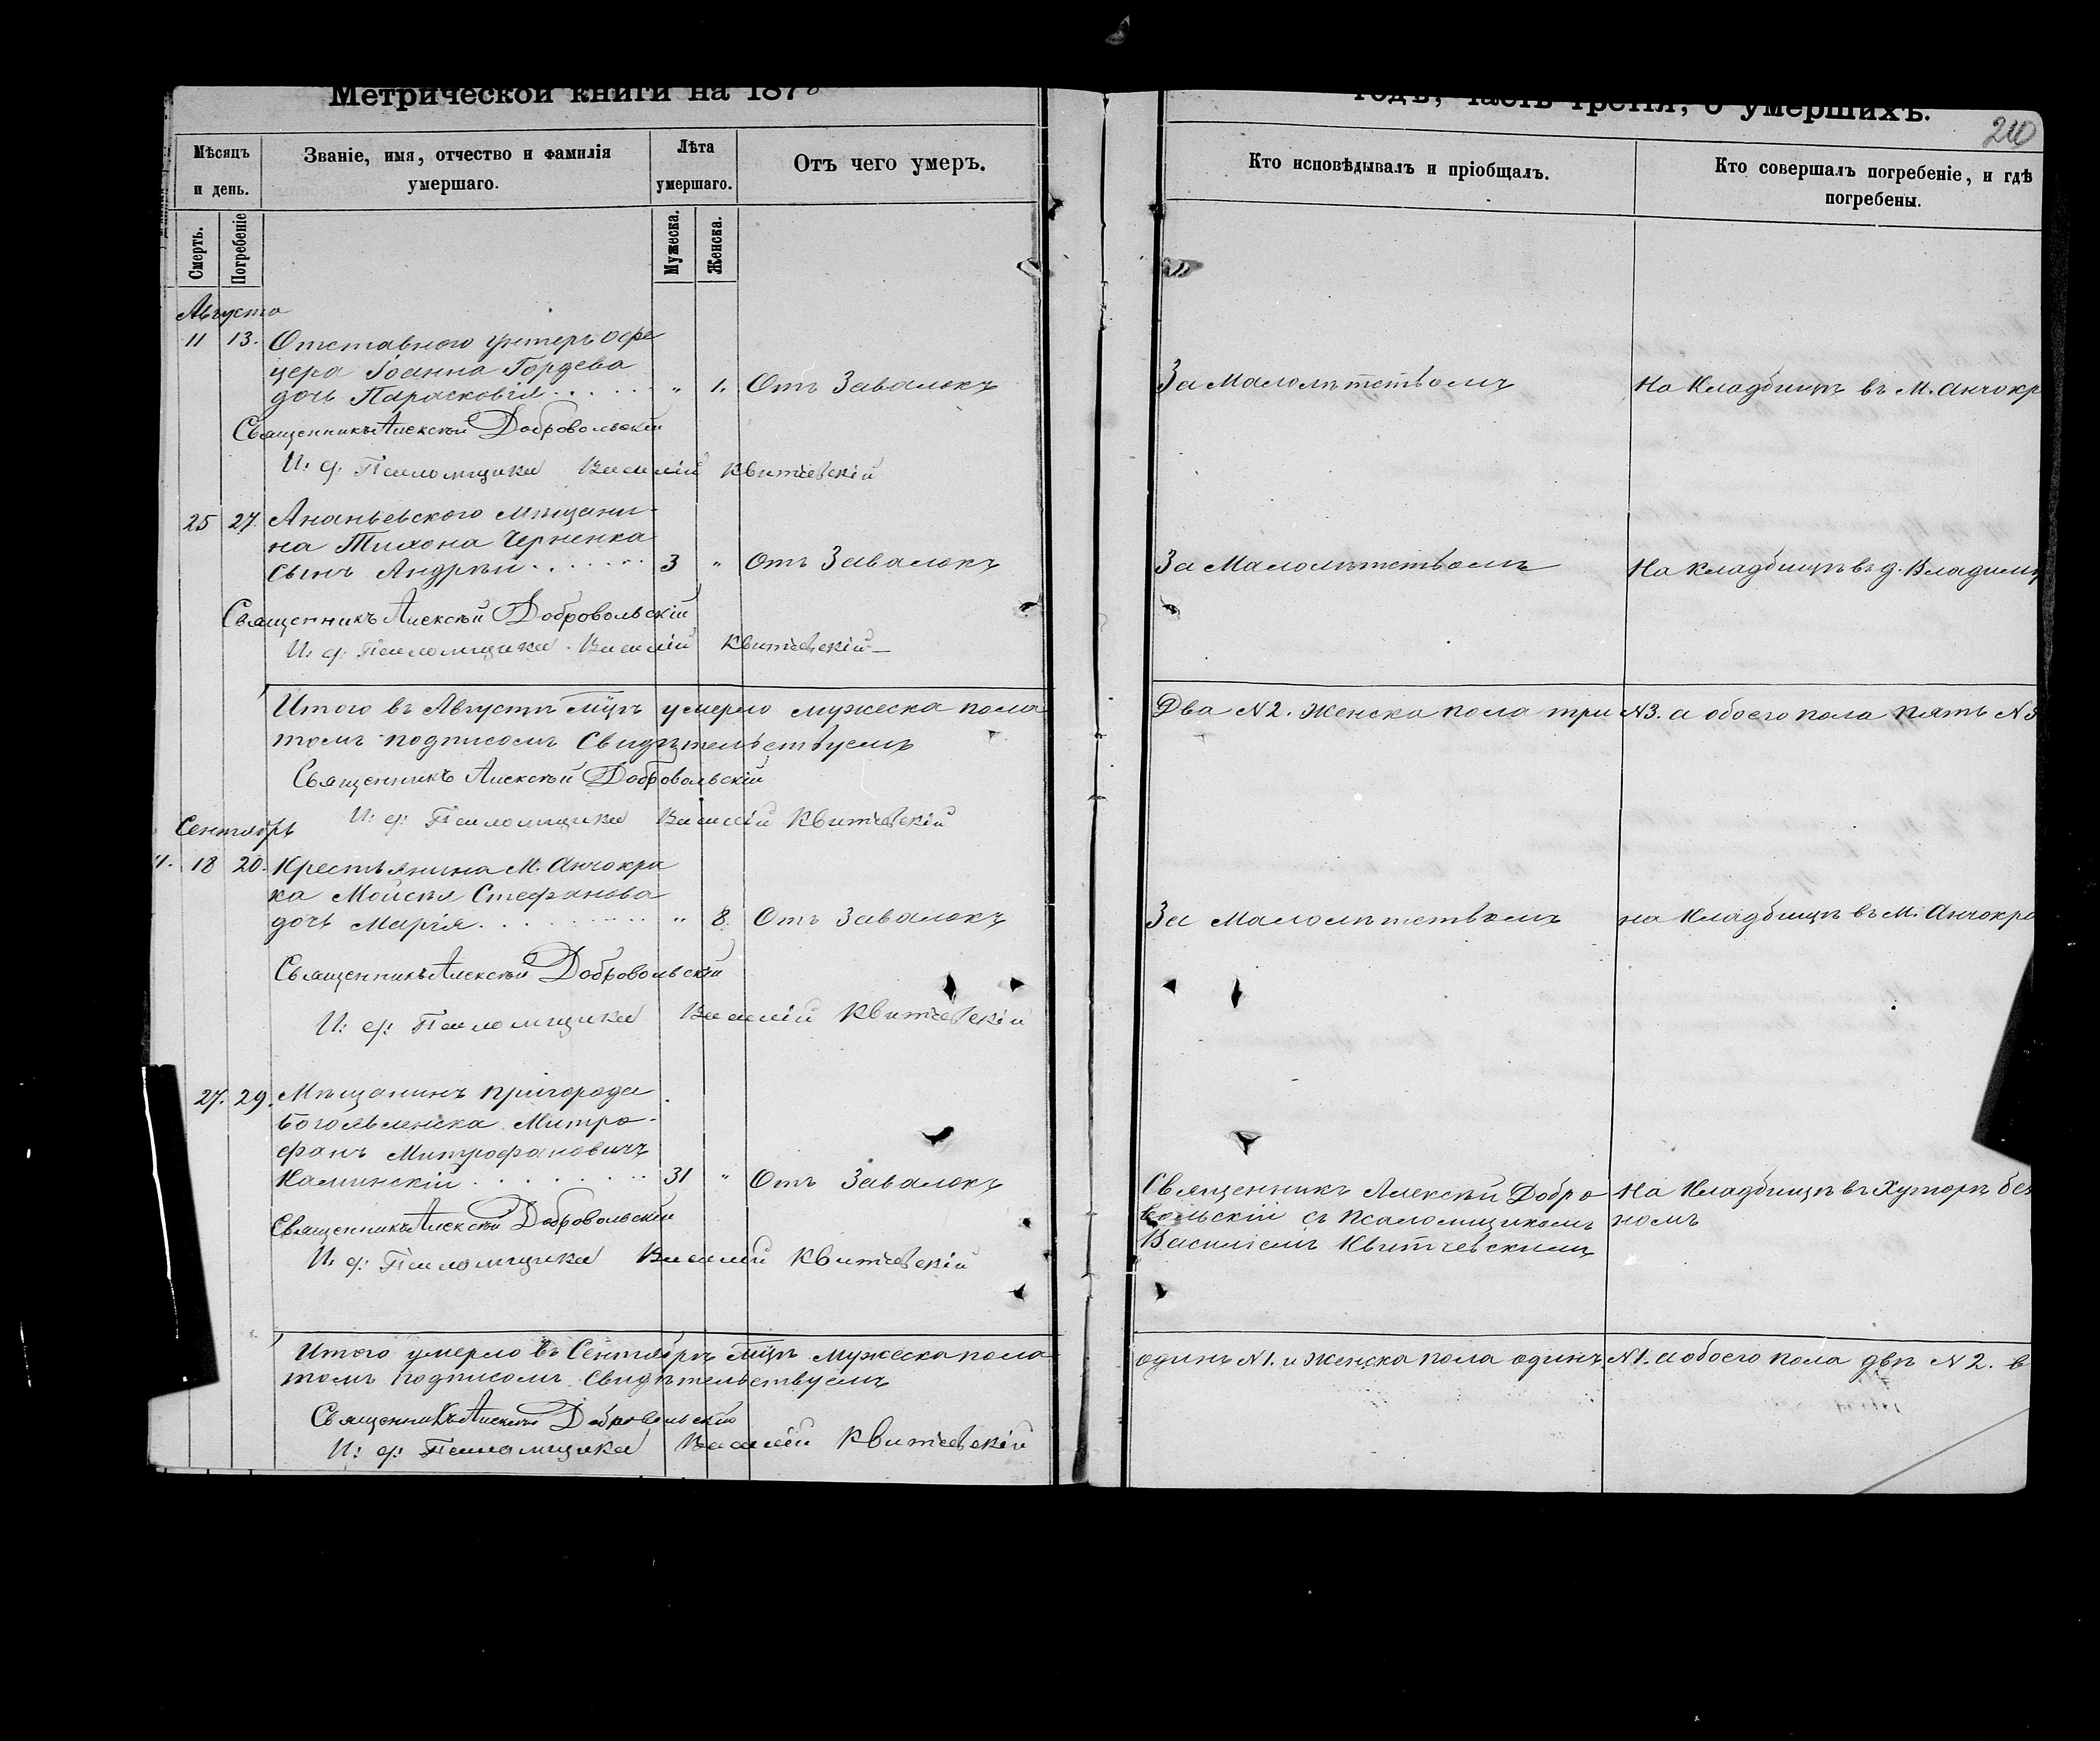 Метрической книги на 1878
годъ, часть третія, о умершихъ.
210
Мѣсяцъ и день.
Званіе, имя, отчество и фамилія умершаго.
Лѣта умершаго.
Отъ чего умеръ.
Кто исповѣдывалъ и пріобщалъ.
Кто совершалъ погребеніе, и гдѣ погребены.
Смерть.
Погребеніе
Мужеска.
Женска.
Августа
11 13. Отставного унтеръ офи
цера Іоанна Гордева
дочь Парасковія . . . . . „ 1. Отъ Завалокъ За Малолѣтствомъ На Кладбищѣ въ М. Анчокр
Священникъ Алексѣй Добровольскій
И. д. Псаломщика Василій Квитчевскій
25 27. Ананьевского мѣщани-
на Тихона Черненка
сынъ Андрей . . . . . . 3 „ Отъ Завалокъ За Малолѣтствомъ На Кладбищѣ въ д. Владими
Священникъ Алексѣй Добровольскій
И. д. Псаломщика Василій Квитчевскій
Итого въ Августѣ мцѣ умерло мужеска пола Два N 2. Женска пола три N3. а обоего пола пять N5
томъ подписомъ Свидѣтельствуемъ
Священникъ Алексѣй Добровольскій
И. д. Псаломщика Василій Квитчевскій
Сентябрь
18 20. Крестьянина М. Анчокра
ка Мойсѣя Стефанова
дочь Марія . . . . . . . „ 8. Отъ Завалокъ За Малолѣтствомъ на Кладбищѣ въ М. Анчокра
Священникъ Алексѣй Добровольскій
И. д. Псаломщика Василій Квитчевскій
27. 29. Мѣщанинъ пригорода
Богоявленска Митро-
фанъ Митрофановичъ
Каминскій . . . . . . . 31 „ Отъ Завалокъ Священникъ Алексѣй Добро На Кладбищѣ въ Хуторѣ без
вольскій съ псаломщикомъ номъ
Василіемъ Квитчевскимъ
Священникъ Алексѣй Добровольскій
И. д. Псаломщика Василій Квитчевскій
Итого умерло въ Сентябрѣ мцѣ мужеска пола одинъ N1. и Женска пола одинъ N1. а обоего пола двѣ N 2. в
томъ подписомъ Свидѣтельствуемъ
Священникъ Алексѣй Добровольскій
И. д. Псаломщика Василій Квитчевскій